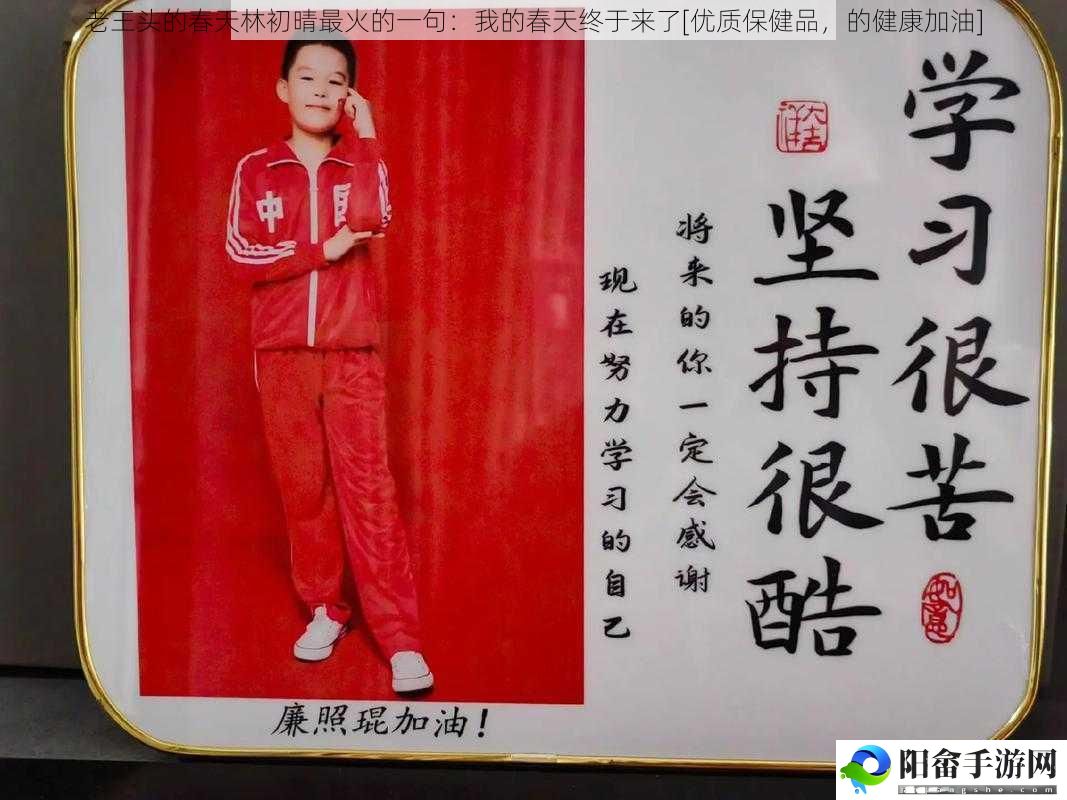 老王头的春天林初晴最火的一句：我的春天终于来了[优质保健品，的健康加油]
学习很苦
坚持很酷
将来的你一定会感谢
现在努力学习的自己
如意
中国
廉照琨加油！
阳畲手游网